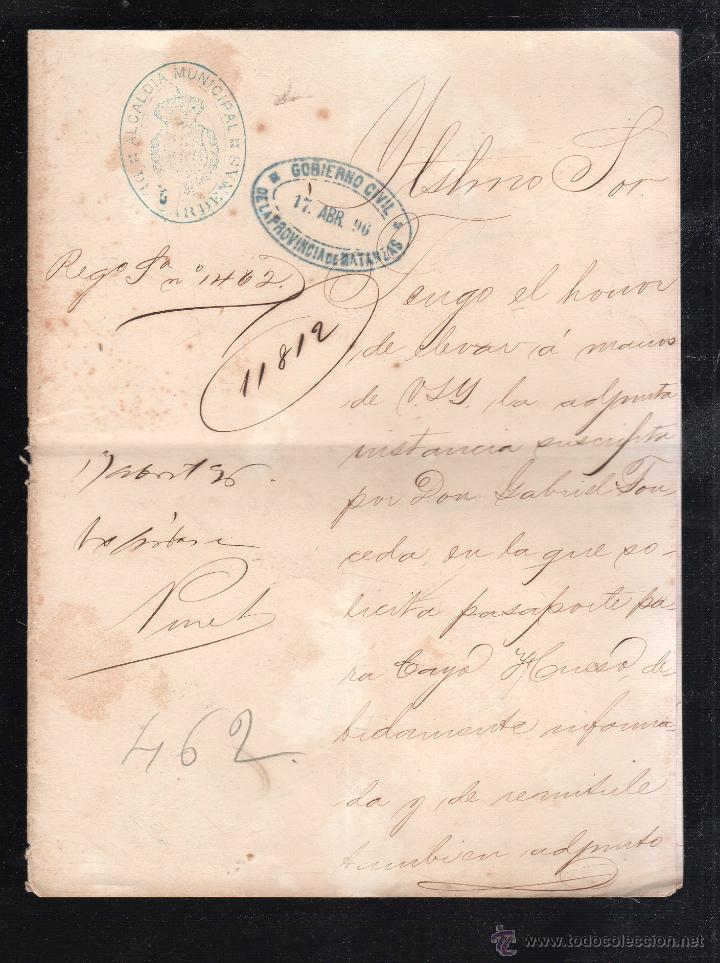 ALCALDÍA MUNICIPAL
DE CÁRDENAS
GOBIERNO CIVIL
17. ABR. 96
DE LA PROVINCIA DE MATANZAS
Ytslmo Sor.
Rego Sa no 1462.
11812
Tengo el honor
de elevar á manos
de V.S.Y. la adjunta
instancia suscripta
por Don Gabriel Tou-
ceda, en la que so-
licita pasaporte pa-
ra Cayo Hueso, de-
bidamente informa-
da y de remitirle
tambien adjunto
17 abril 96.
Pinet
462.
www.todocoleccion.net